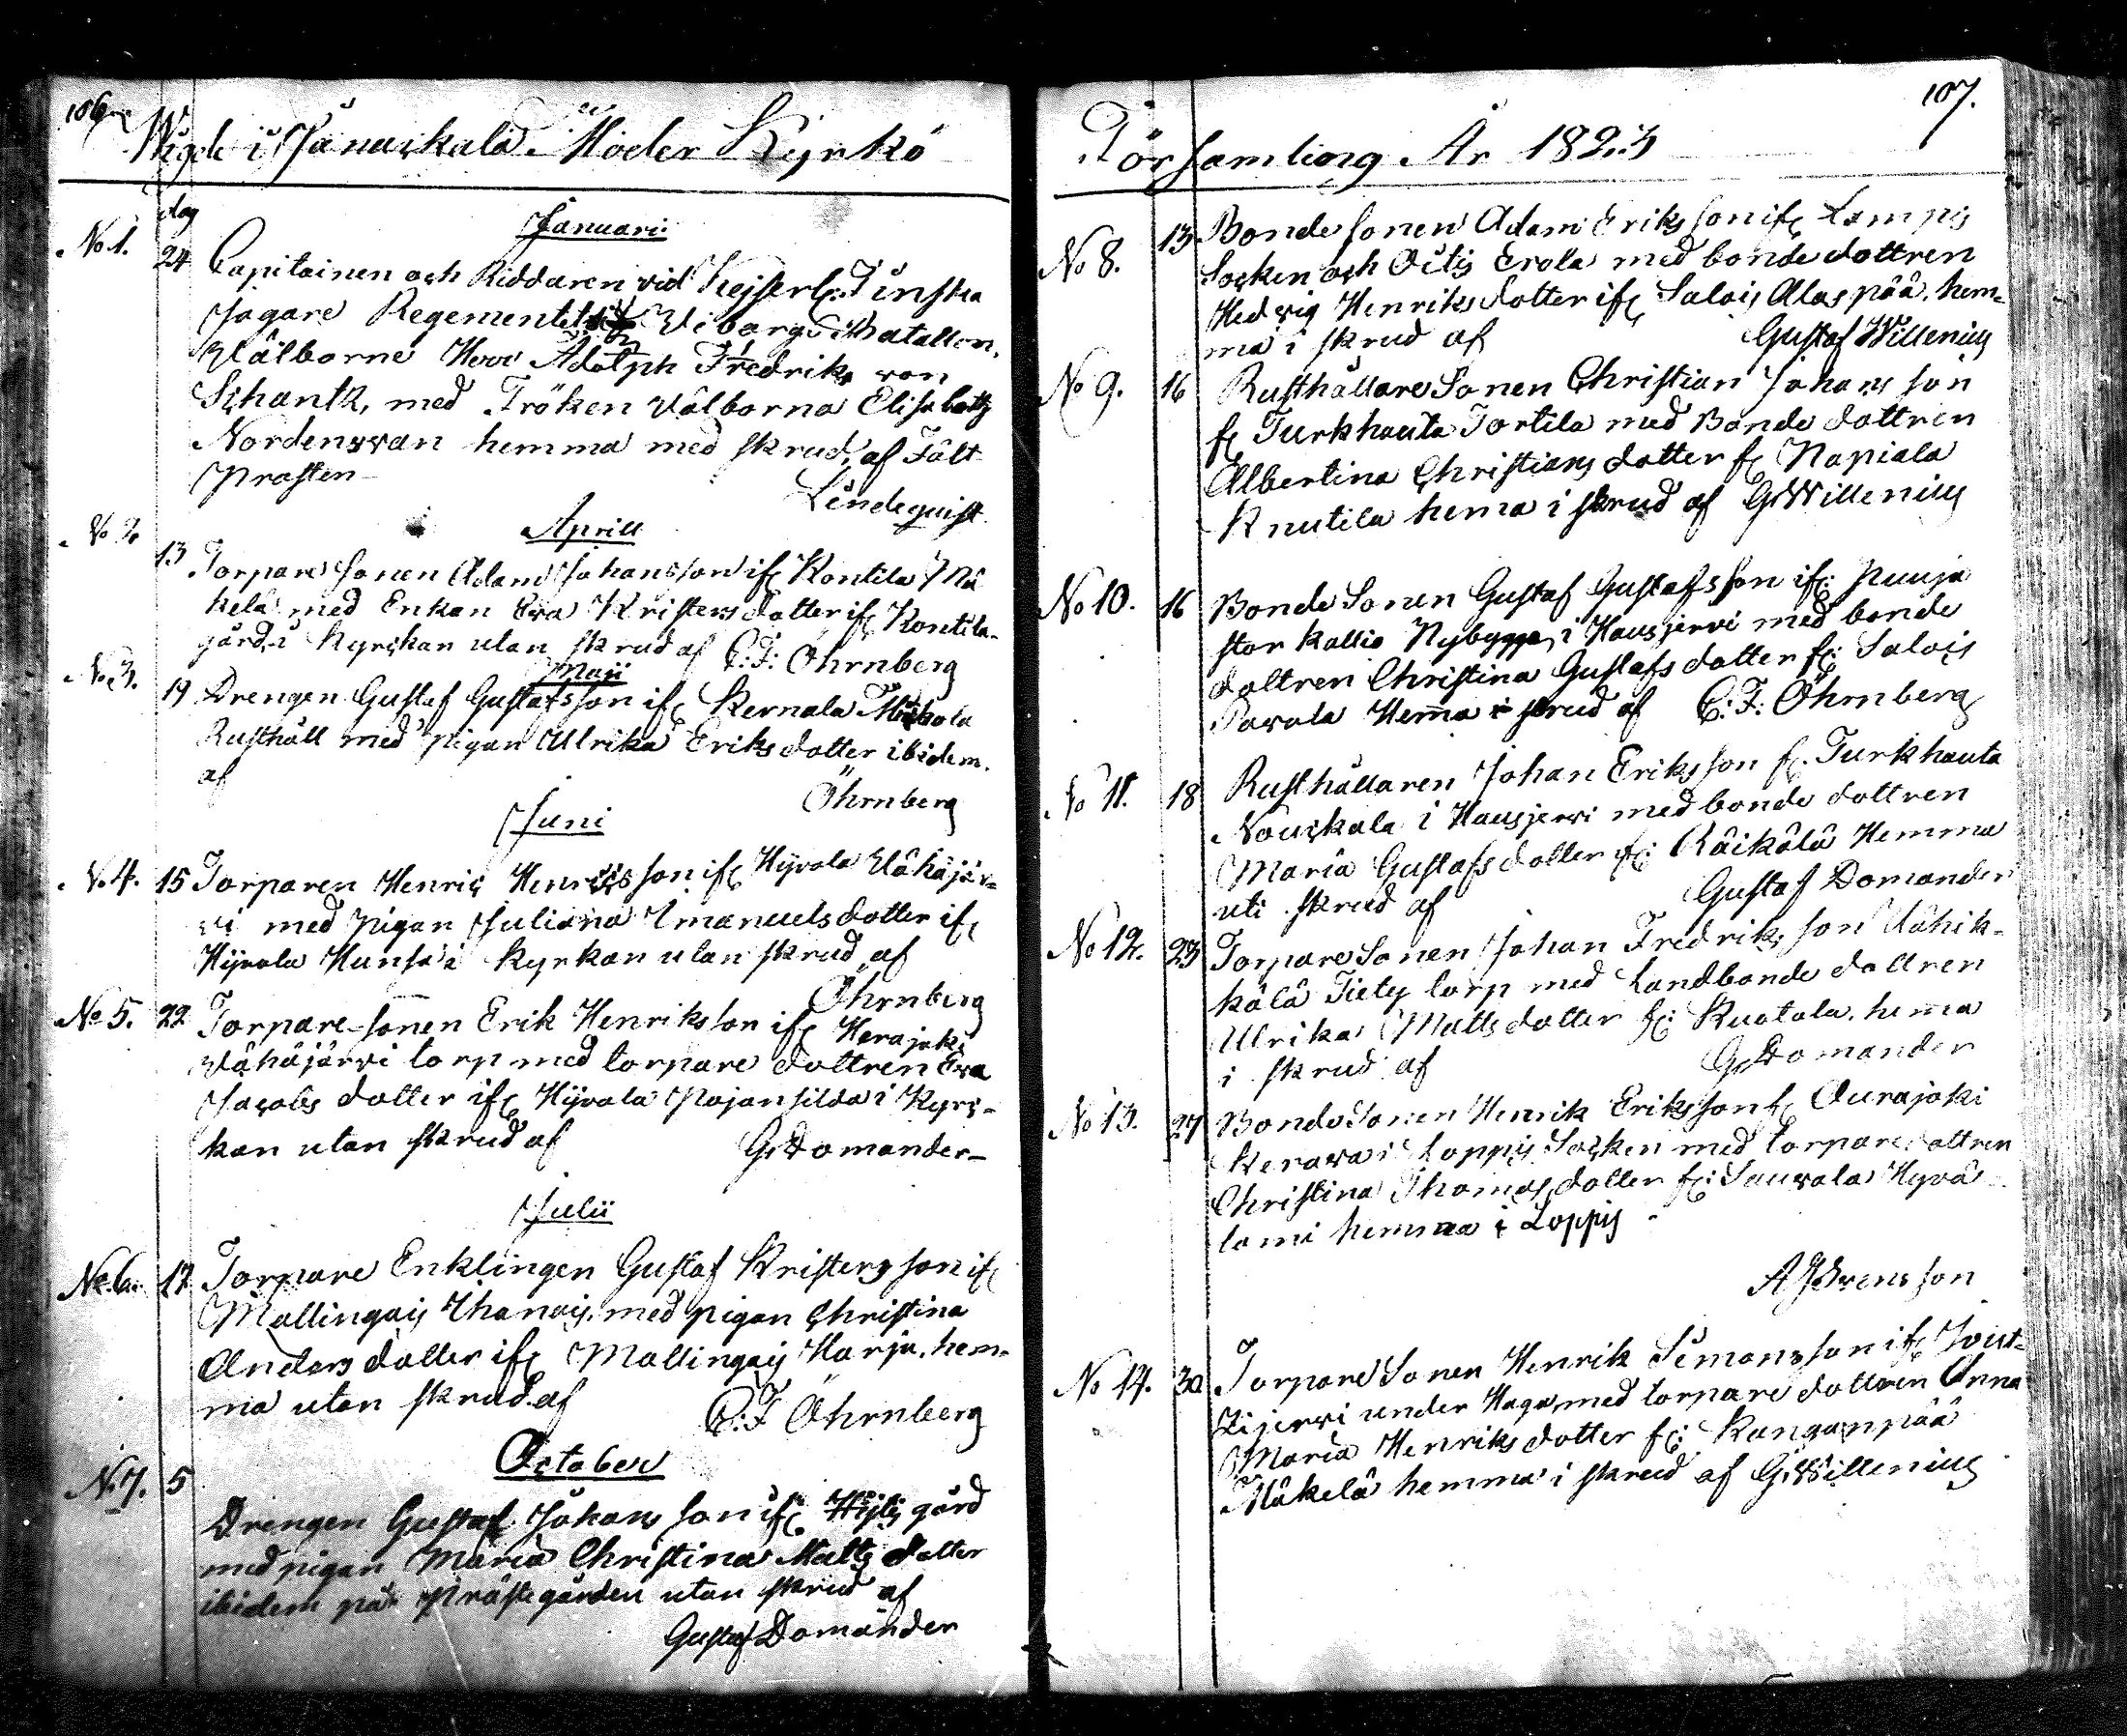 106
Wigde i Janackala Moder Kyrko
dag
Januari
No 1. 24 Capitainen och Riddaren vid Kejserl: Finska
Jägare Regementets Wiborgs Batallion,
Välborne Herr Adolph Fredrik von
Schantz, med Fröken Välborna Elisabeth
Nordensvan hemma med skrud, af Fält
Prosten
Lindequist
Aprill
No 2 13 Torpare Sonen Adam Johansson if: Kontila Mä
kelä med Enkan Eva Kristersdotter if: Kontila
gård, i Kyrckan utan skrud af C: F: Öhrnberg
Maji
No 3. 19 Drengen Gustaf Gustafsson if: Kernala Mikola
Rusthåll med pigan Ulrika Eriksdotter ibidem.
af
Öhrnberg
Juni
No 4. 15 Torparen Henric Henricsson if: Hyvola Vähäjär-
vi med pigan Juliana Imanuelsdotter if:
Hyvola Hunsa i Kyrkan utan skrud af
Öhrnberg
No 5. 22 Torpare-sonen Erik Henriksson if: Herajoki
Vähäjärvi torp med torpare dottren Eva
Jacobs dotter if: Hyvola Pajansilda i Kyrc-
kan utan skrud af G. Domander-
Julii
No 6. 17 Torpare Enklingen Gustaf Kristersson if:
Mallingais Ihanais, med pigan Christina
Anders dotter if: Mallingais Harju, hem-
ma utan skrud af C: F Öhrnberg
October
No 7. 5 Drengen Gustaf Johansson if: gård
med pigan Maria Christina Matts dotter
ibidem på Prästegården utan skrud af
Gustaf Domander
107.
Församling År 1823
No 8. 13 Bonde sonen Adam Eriksson if: Lampis
Socken och Oitis Erola med bonde dottren
Hedvig Henriksdotter if: Salois Alaspää, hem-
ma i skrud af Gustaf Willenius
No 9. 16 Rusthållare Sonen Christian Johansson
f: Turkhauta Tortila med Bonde dottren
Albertina Christiansdotter f: Napiala
Knutila hema i skrud af G. Willenius
No 10. 16 Bonde Sonen Gustaf Gustafsson if: Puuja
stor kallio Nybygge i Hausjervi med bonde
dottren Christina Gustafsdotter f: Salois
Pavola Hema i skrud af C: F: Öhrnberg
No 11. 18 Rusthållaren Johan Eriksson f. Turkhauta
Nouskala i Hausjervi med bonde dottren
Maria Gustafsdotter f: Räikälä Hemma
uti skrud af Gustaf Domander
No 12. 23 Torpare Sonen Johan Fredriksson Vähik-
kälä Tiety torp med Landbonde dottren
Ulrika Mattsdotter f: Ruotola, hema
i skrud af G. Domander
No 13. 27 Bonde Sonen Henrik Eriksson f: Aurajoki
Kerava i Loppis Socken med torpare dottren
Christina Thomasdotter f: Sauvala Hyvä
lami hemma i Loppis -
A
No 14. 30 Torpare Sonen Henrik Simonsson if:
under Haga, med torpare dottren Anna
Maria Henriksdotter f: Kanganpää
Mäkelä hemma i skrud af G. Willenius